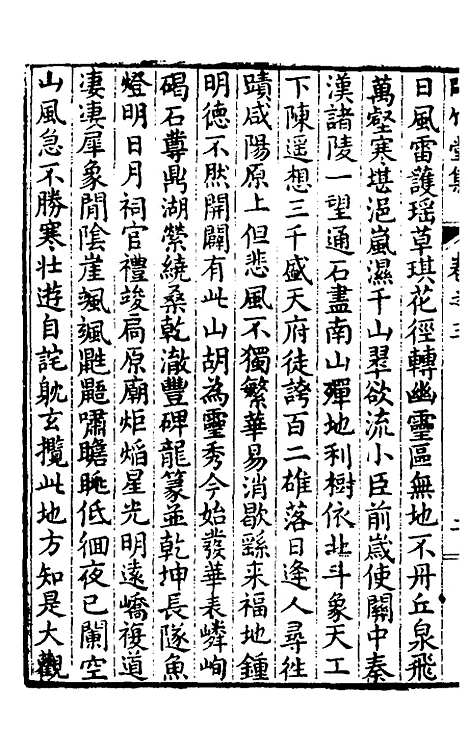 日風雷護瑶草琪花徑轉幽靈區無地不丹丘泉飛
萬壑寒堪浥嵐濕千山翠欲流小臣前歲使關中秦
漢諸陵一望通石盡南山殫地利樹依北斗象天工
下陳遥想三千盛天府徒誇百二雄落日逢人尋徃
蹟咸陽原上但悲風不獨繁華易消歇繇来福地鍾
明德不然開闢有此山胡為靈秀今始發華表嶙峋
碣石尊鼎湖縈繞桑乾澈豐碑龍篆並乾坤長隧魚
燈明日月祠官禮竣扃原廟炬熖星光明遠嶠複道
淒淒犀象閒陰崖颯颯鼪鼯嘯瞻眺低徊夜已闌空
山風急不勝寒壮遊自詫躭玄攬此地方知是大觀